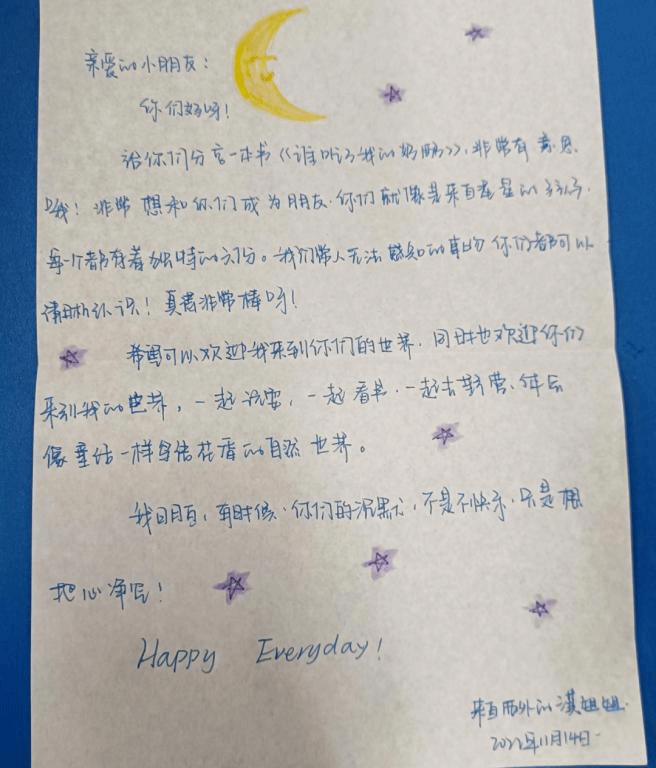 亲爱的小朋友：
你们好呀！
给你们分享一本书《谁吃了我的奶酪》，非常有意思
哦！非常想和你们成为朋友，你们就像是来自星星的孩子，
每一个都有着独特的天份。我们常人无法感知的事物你们都可以
清晰认识！真普非常棒呀！
希望可以欢迎我来到你们的世界，同时也欢迎你们
来到我的世界，一起说，一起看书，一起去野营，
像童话一样鸟语花香的自然世界。
我明白，有时候，你们的沉默，不是不快乐，只是想
把心净
Happy Everyday!
来自西外的漠姐姐
2022年11月14日